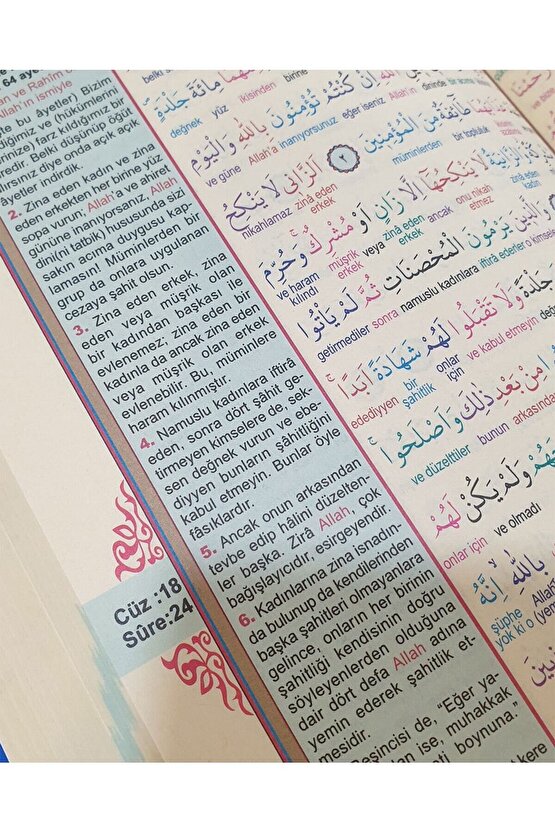 64 aye
an ve Rahîm o
Allah'ın ismiyle
te bu âyetler) Bizim
diğimiz ve (hükümlerini
erinize) farz kıldığımız bir
redir. Belki düşünüp öğüt
lırsınız diye onda açık açık
âyetler indirdik.
2. Zina eden kadın ve zina
eden erkekten her birine yüz
sopa vurun; Allah'a ve ahiret
gününe inanıyorsanız, Allah
dini(ni tatbik) hususunda sizi
sakın acıma duygusu kap-
lamasın! Müminlerden bir
grup da onlara uygulanan
cezaya şahit olsun.
3. Zina eden erkek, zina
eden veya müşrik olan
bir kadından başkası ile
evlenemez; zina eden bir
kadınla da ancak zina eden
veya müşrik olan erkek
evlenebilir. Bu, müminlere
haram kılınmıştır.
4. Namuslu kadınlara iftirâ
eden, sonra dört şâhit ge-
tirmeyen kimselere de, sek-
sen değnek vurun ve ebe-
diyyen bunların şâhitliğini
kabul etmeyin. Bunlar öyle
fâsıklardır.
5. Ancak onun arkasından
tevbe edip hâlini düzelten-
ler başka. Zirâ Allah, çok
bağışlayıcıdır, esirgeyendir.
6. Kadınlarına zina isnadın-
da bulunup da kendilerinden
başka şahitleri olmayanlara
gelince, onların her birinin
şahitliği kendisinin doğru
söyleyenlerden olduğuna
dair dört defa Allah adına
yemin ederek şahitlik et-
mesidir.
Beşincisi de, "Eğer ya-
dan ise, muhakkak
eti boynuna."
Cüz :18
Sûre:24
belki
مِائَةَ جَلْدَةٍ
değnek yüz ikisinden birine
اِنْ كُنْتُمْ تُؤْمِنُونَ بِاللّٰهِ وَالْيَوْمِ
ve güne Allah'a inanıyorsunuz eğer iseniz Allah'ın dininde bir acıma
طَٓائِفَةٌ مِنَ الْمُؤْمِنِينَ ٢ اَلزَّانِى لَا يَنْكِحُ
nikahlamaz zinâ eden erkek müminlerden bir topluluk
وَالزَّانِيَةُ لَا يَنْكِحُهَٓا اِلَّا زَانٍ اَوْ مُشْرِكٌ وَحُرِّمَ
ve haram kılındı müşrik erkek veya zinâ eden erkek ancak onu nikah etmez zinâ eden kadın
وَالَّذِينَ يَرْمُونَ الْمُحْصَنَاتِ ثُمَّ لَمْ يَأْتُوا
getirmediler sonra namuslu kadınlara iftirâ ederler o kimseler
جَلْدَةً وَلَا تَقْبَلُوا لَهُمْ شَهَادَةً اَبَدًا
ebediyyen bir şahitlik onlar için ve kabul etmeyin değnek
مِنْ بَعْدِ ذٰلِكَ وَاَصْلَحُوا
ve düzelttiler bunun arkasından
وَلَمْ يَكُنْ لَهُمْ
onlar için ve olmadı
بِاللّٰهِ اِنَّهُ
şüphe yok ki o